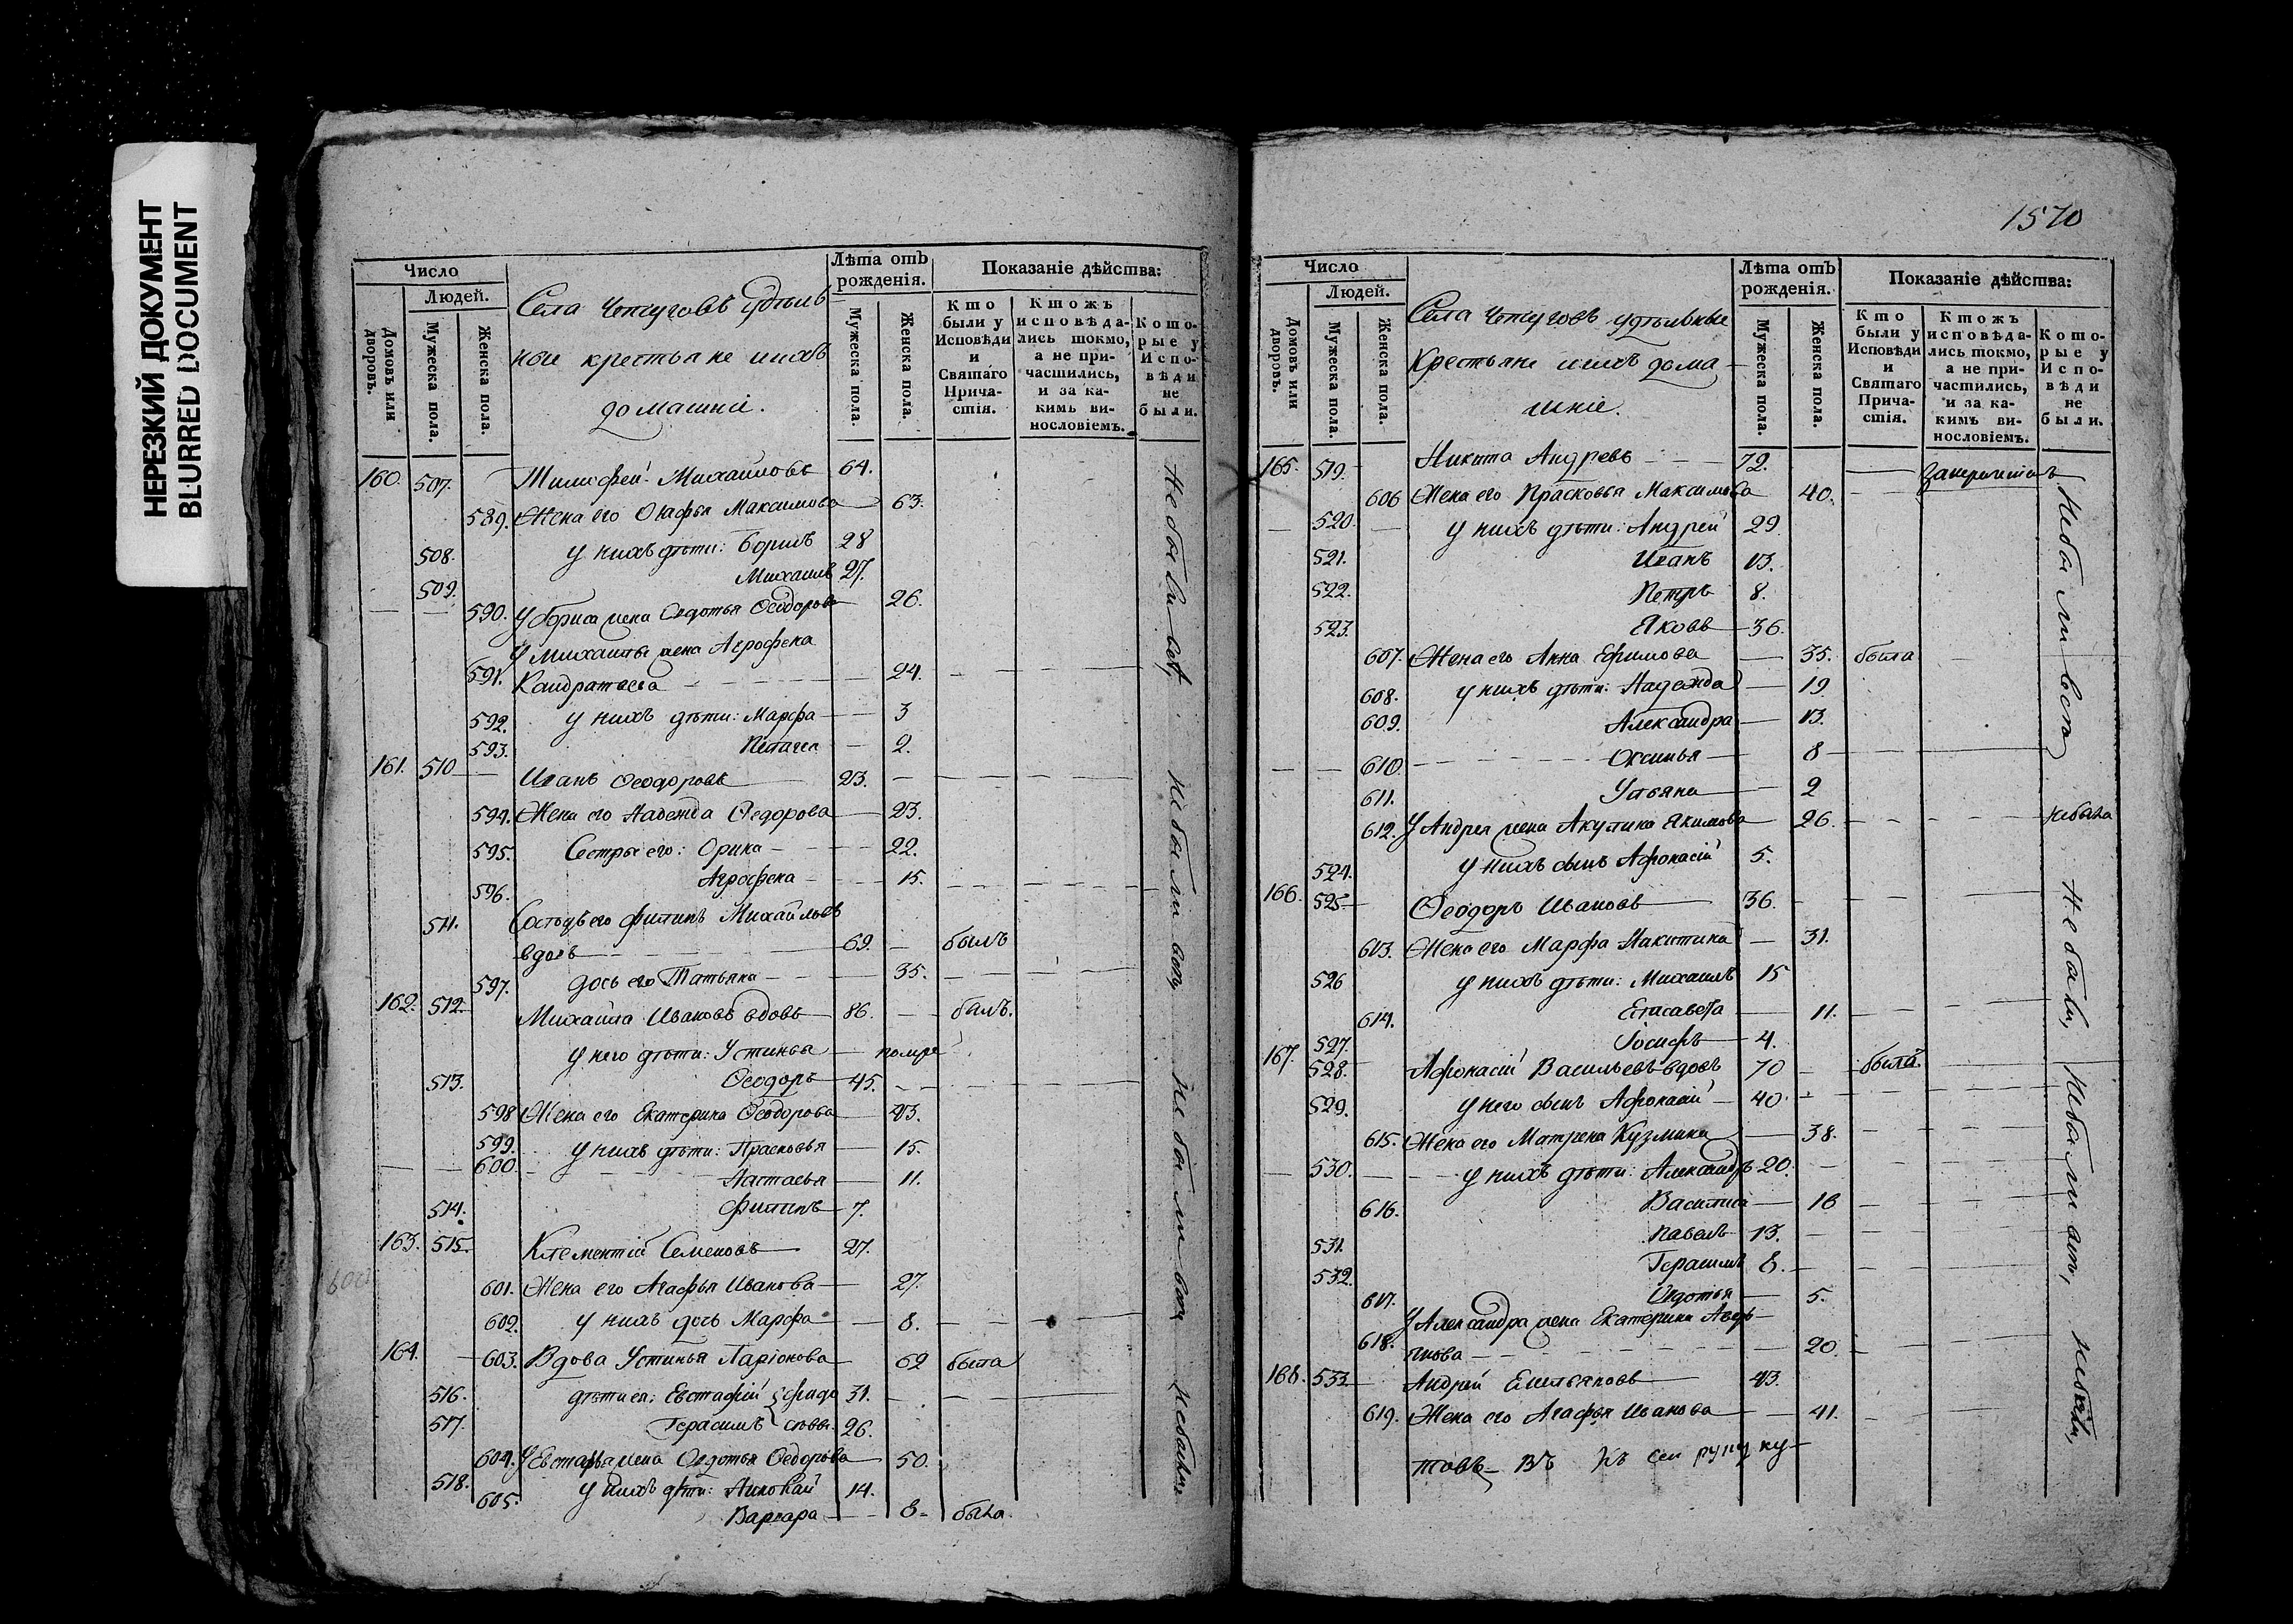 НЕРЕЗКИЙ ДОКУМЕНТ
BLURRED DOCUMENT
Число
Людей.
Домовъ или дворовъ.
Мужеска пола.
Женска пола.
Села Чепчуговъ удѣль
ные крестьяне и ихъ
домашніе.
Лѣта отъ рожденія.
Мужеска пола.
Женска пола.
Показаніе дѣйства:
Кто были у Исповѣди и Святаго Прича- стія.
Ктожъ исповѣда- лись токмо, а не при- частились, и за ка- кимъ ви- нословіемъ.
Кото- рые у Испо- вѣди не были.
160. 507. Тимофей Михайловъ 64.
589. Жена его Агафья Максимова 63.
508. у нихъ дѣти: Борисъ 28
509. Михаилъ 27.
590. У Бориса жена Овдотья Ѳеодорова 26.
У Михаилы жена Агрофена
591. Кондратьева 24.
592. у нихъ дѣти: Марфа 3
593. Пелагея 2.
161. 510 Иванъ Ѳеодоровъ 23.
594. Жена его Надежда Ѳедорова 23.
595. Сестры его: Орина 22.
596. Агрофена 15.
511. Сосѣдъ его Филипъ Михайловъ
вдовъ 69. былъ
597. дочь его Татьяна 35.
162. 512. Михаила Ивановъ вдовъ 86. былъ.
у него дѣти: Устинья помре
513. Ѳеодоръ 45.
598 Жена его Екатерина Ѳеодорова 43.
599. у нихъ дѣти: Прасковья 15.
600. Настасья 11.
514. Филипъ 7.
163. 515. Клементій Семеновъ 27.
601. Жена его Агафья Иванова 27.
602. у нихъ дочь Марфа 8.
164. 603. Вдова Устинья Ларіонова 62 была
516. дѣти ея: Евстафій 31.
517. Герасимъ 26.
604. У Евстафья жена Овдотья Ѳедорова 50.
518. у нихъ дѣти: 14.
605. Варвара 8. была
600
1570
Число
Людей.
Домовъ или дворовъ.
Мужеска пола.
Женска пола.
Села Чепчуговъ удѣльные
Крестьяне и ихъ дома-
шніе.
Лѣта отъ рожденія.
Мужеска пола.
Женска пола.
Показаніе дѣйства:
Кто были у Исповѣди и Святаго Прича- стія.
Ктожъ исповѣда- лись токмо, а не при- частились, и за ка- кимъ ви- нословіемъ.
Кото- рые у Испо- вѣди не были.
165. 519. Никита Андревъ 72.
606 Жена его Прасковья Максимова 40.
520. у нихъ дѣти: Андрей 29.
521. Иванъ 13.
522. Петръ 8.
523. Яковъ 36.
607. Жена его Анна Ефимова 35. была
608. у нихъ дѣти: Надежда 19
609. Александра 13.
610. Оксинья 8
611. Ульяна 2
612. У Андрея жена Акулина Якимова 26. небыла
524. у нихъ сынъ Афонасій 5.
166. 525. Ѳеодоръ Ивановъ 36.
613. Жена его Марфа Никитина 31.
526 у нихъ дѣти: Михаилъ 15
614. Елисавета 11.
527. Іосифъ 4.
167. 528. Афонасій Васильевъ вдовъ 70 былъ.
529. у него сынъ Афонасій 40.
615. Жена его Матрена Кузмина 38.
530. у нихъ дѣти: Александръ 20.
616. Василиса 16
531. Павелъ 13.
532. Герасимъ 8.
617. Овдотья 5.
У Александра жена Екатерина
618. 20.
168. 533. Андрей Емельяновъ 43.
619. Жена его Агафья Иванова 41.